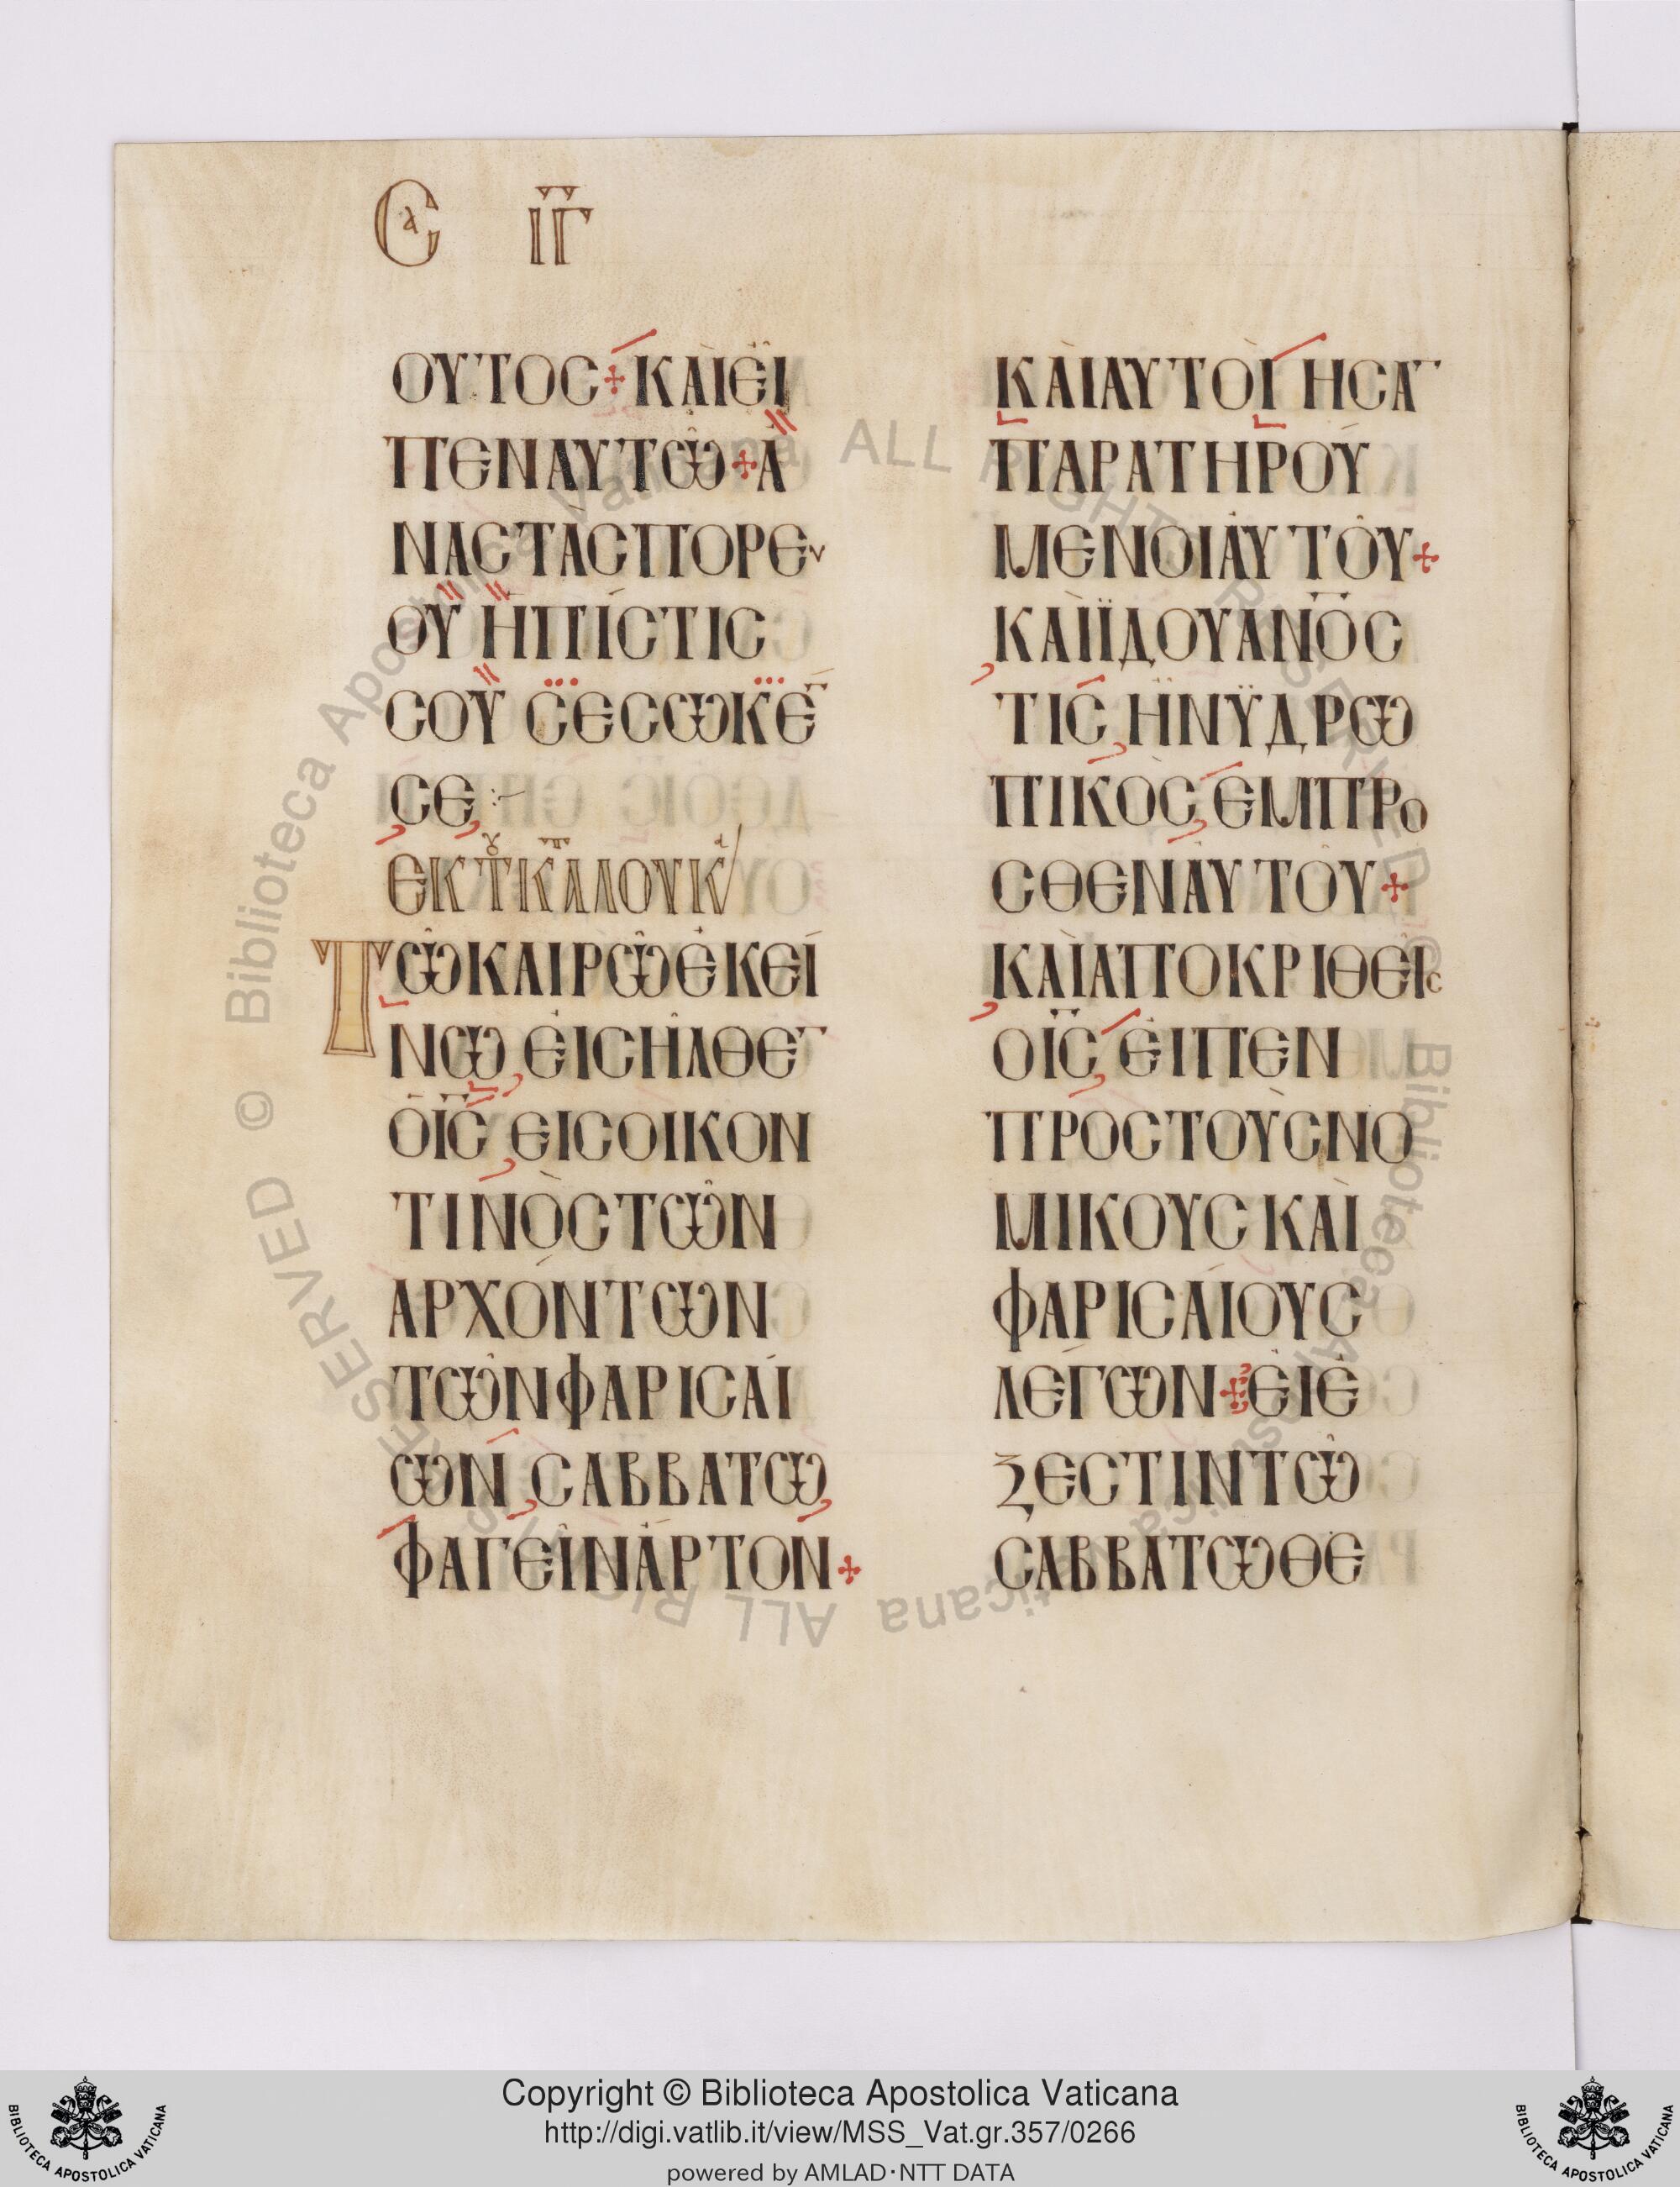 Cᵃ ΙΓ̅
ΟΥΤΟC + ΚΑΙ ΕΙ
ΠΕΝ ΑΥΤΩ + Α
ΝΑCΤΑC ΠΟΡΕΥ
ΟΥ Η ΠΙCΤΙC
CΟΥ CΕCΩΚΕ̅
CΕ :~
ΕΚ Τ ΚΑ ΛΟΥΚ
ΤΩ ΚΑΙΡΩ ΕΚΕΙ
ΝΩ ΕΙCΗΛΘΕ̅
Ο ΙC̅ ΕΙC ΟΙΚΟΝ
ΤΙΝΟC ΤΩΝ
ΑΡΧΟΝΤΩΝ
ΤΩΝ ΦΑΡΙCΑΙ
ΩΝ CΑΒΒΑΤΩ
ΦΑΓΕΙΝ ΑΡΤΟΝ +
ΚΑΙ ΑΥΤΟΙ ΗCΑ̅
ΠΑΡΑΤΗΡΟΥ
ΜΕΝΟΙ ΑΥΤΟΥ +
ΚΑΙ ΙΔΟΥ ΑΝΟ̅C
ΤΙC ΗΝ ΥΔΡΩ
ΠΙΚΟC ΕΜΠΡΟ
CΘΕΝ ΑΥΤΟΥ +
ΚΑΙ ΑΠΟΚΡΙΘΕΙC
Ο ΙC̅ ΕΙΠΕΝ
ΠΡΟC ΤΟΥC ΝΟ
ΜΙΚΟΥC ΚΑΙ
ΦΑΡΙCΑΙΟΥC
ΛΕΓΩΝ + ΕΙ Ε
ΞΕCΤΙΝ ΤΩ
CΑΒΒΑΤΩ ΘΕ
© Biblioteca Apostolica Vaticana ALL RIGHTS RESERVED © Biblioteca Apostolica Vaticana ALL RIGHTS RESERVED
Copyright © Biblioteca Apostolica Vaticana
http://digi.vatlib.it/view/MSS_Vat.gr.357/0266
powered by AMLAD·NTT DATA
BIBLIOTECA APOSTOLICA VATICANA
BIBLIOTECA APOSTOLICA VATICANA